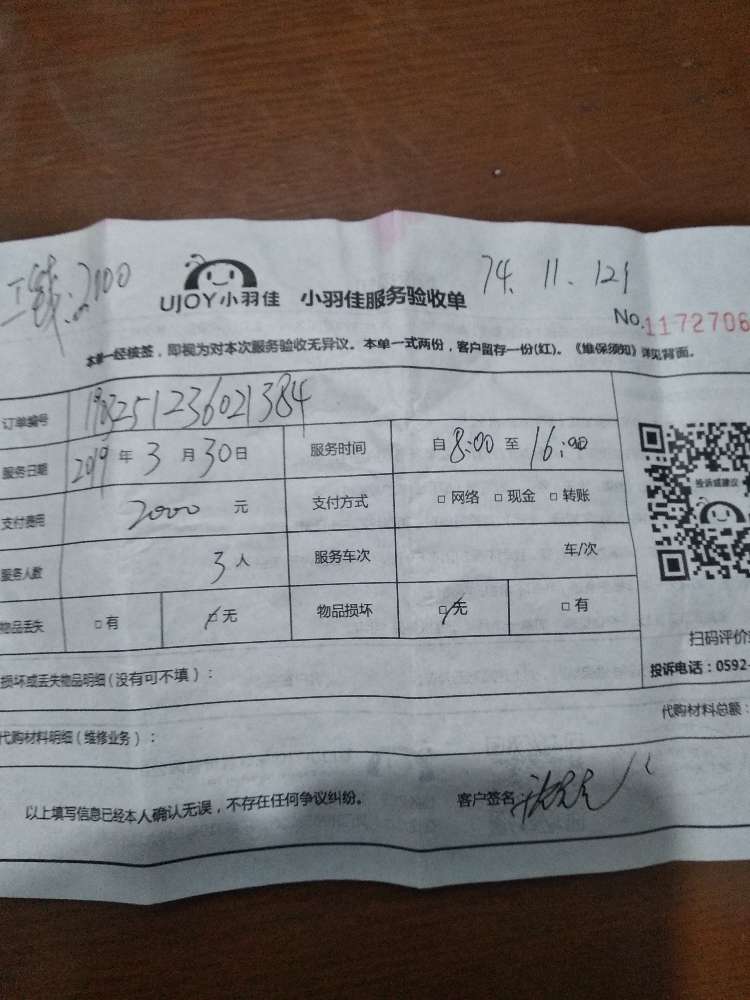 2000
74. 11. 121
UJOY小羽佳 小羽佳服务验收单
No.1172706
本单一经核签，即视为对本次服务验收无异议。本单一式两份，客户留存一份(红)。《维保须知》详见背面。
订单编号 190325123602 1384
服务日期 2019 年 3 月 30 日 服务时间 自 8:00 至 16:00
投诉或建议
支付费用 2000 元 支付方式 □ 网络 □ 现金 □ 转账
服务人数 3 人 服务车次 车/次
物品丢失 □ 有 □ 无 物品损坏 □ 无 □ 有
扫码评价
损坏或丢失物品明细(没有可不填)：
投诉电话：0592-
代购材料明细(维修业务)：
代购材料总额：
以上填写信息已经本人确认无误，不存在任何争议纠纷。 客户签名